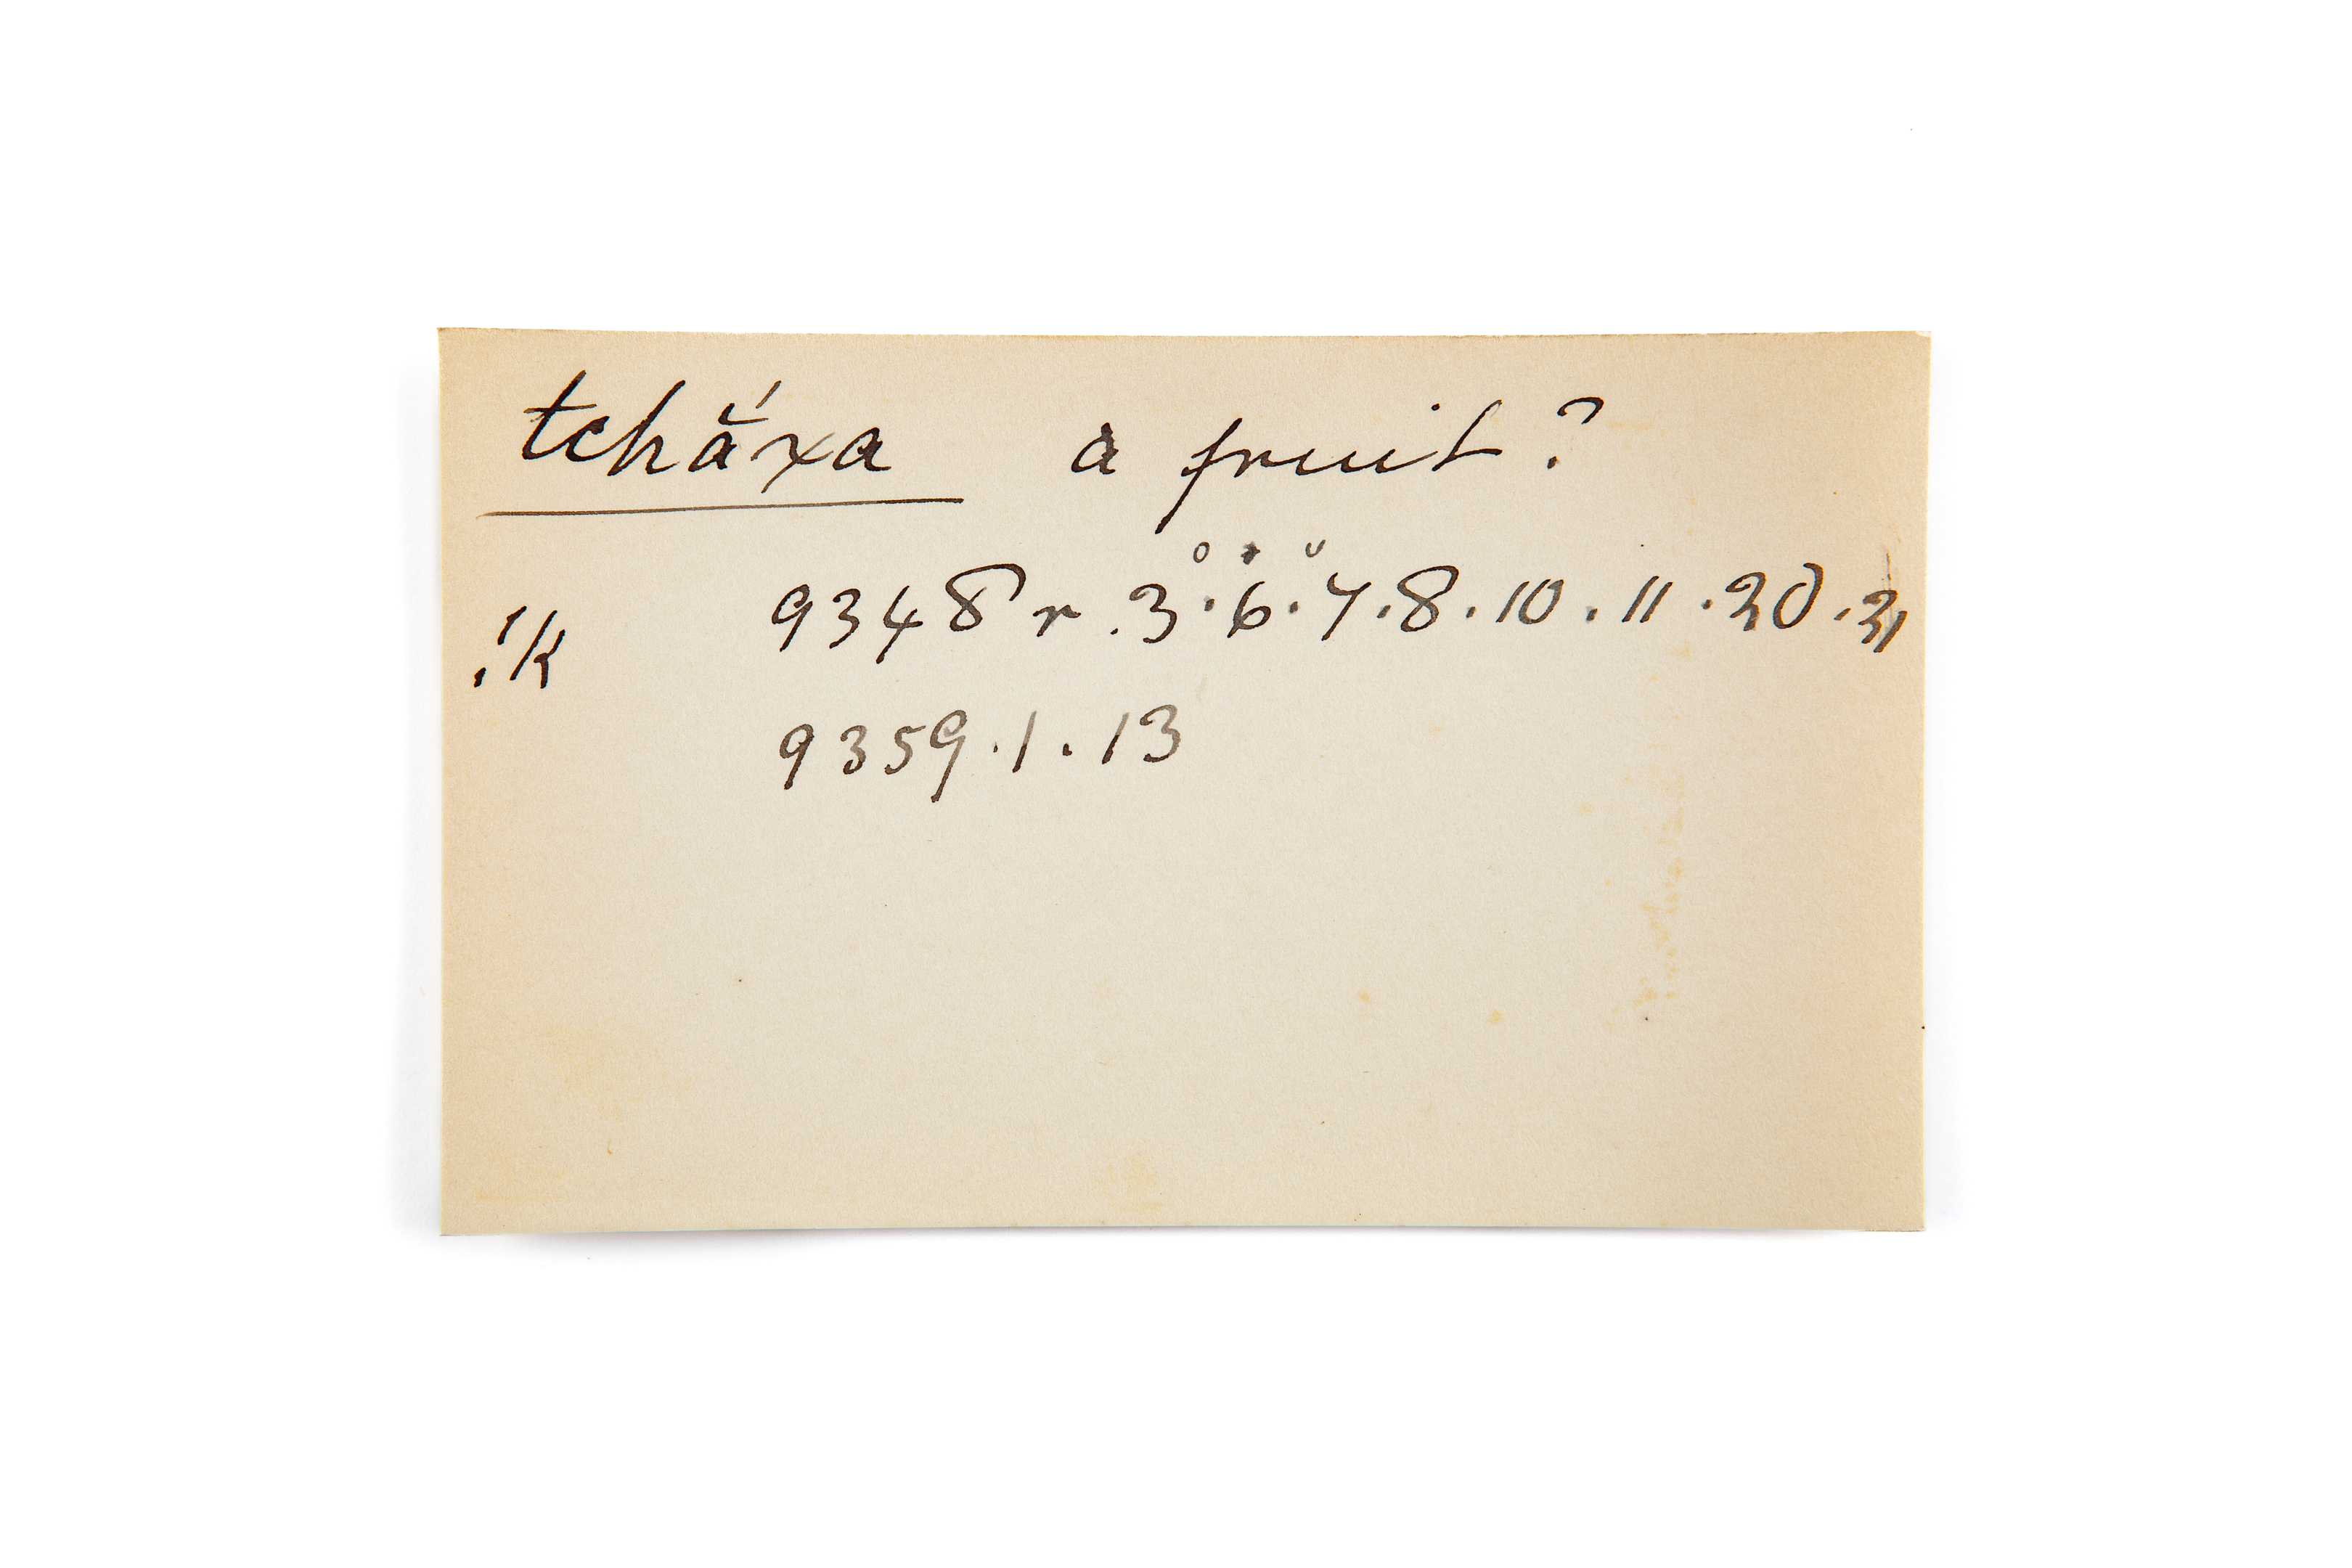 tchắxa a fruit?
!k 9348 r .3.6.7.8.10.11.20.21
9359.1.13